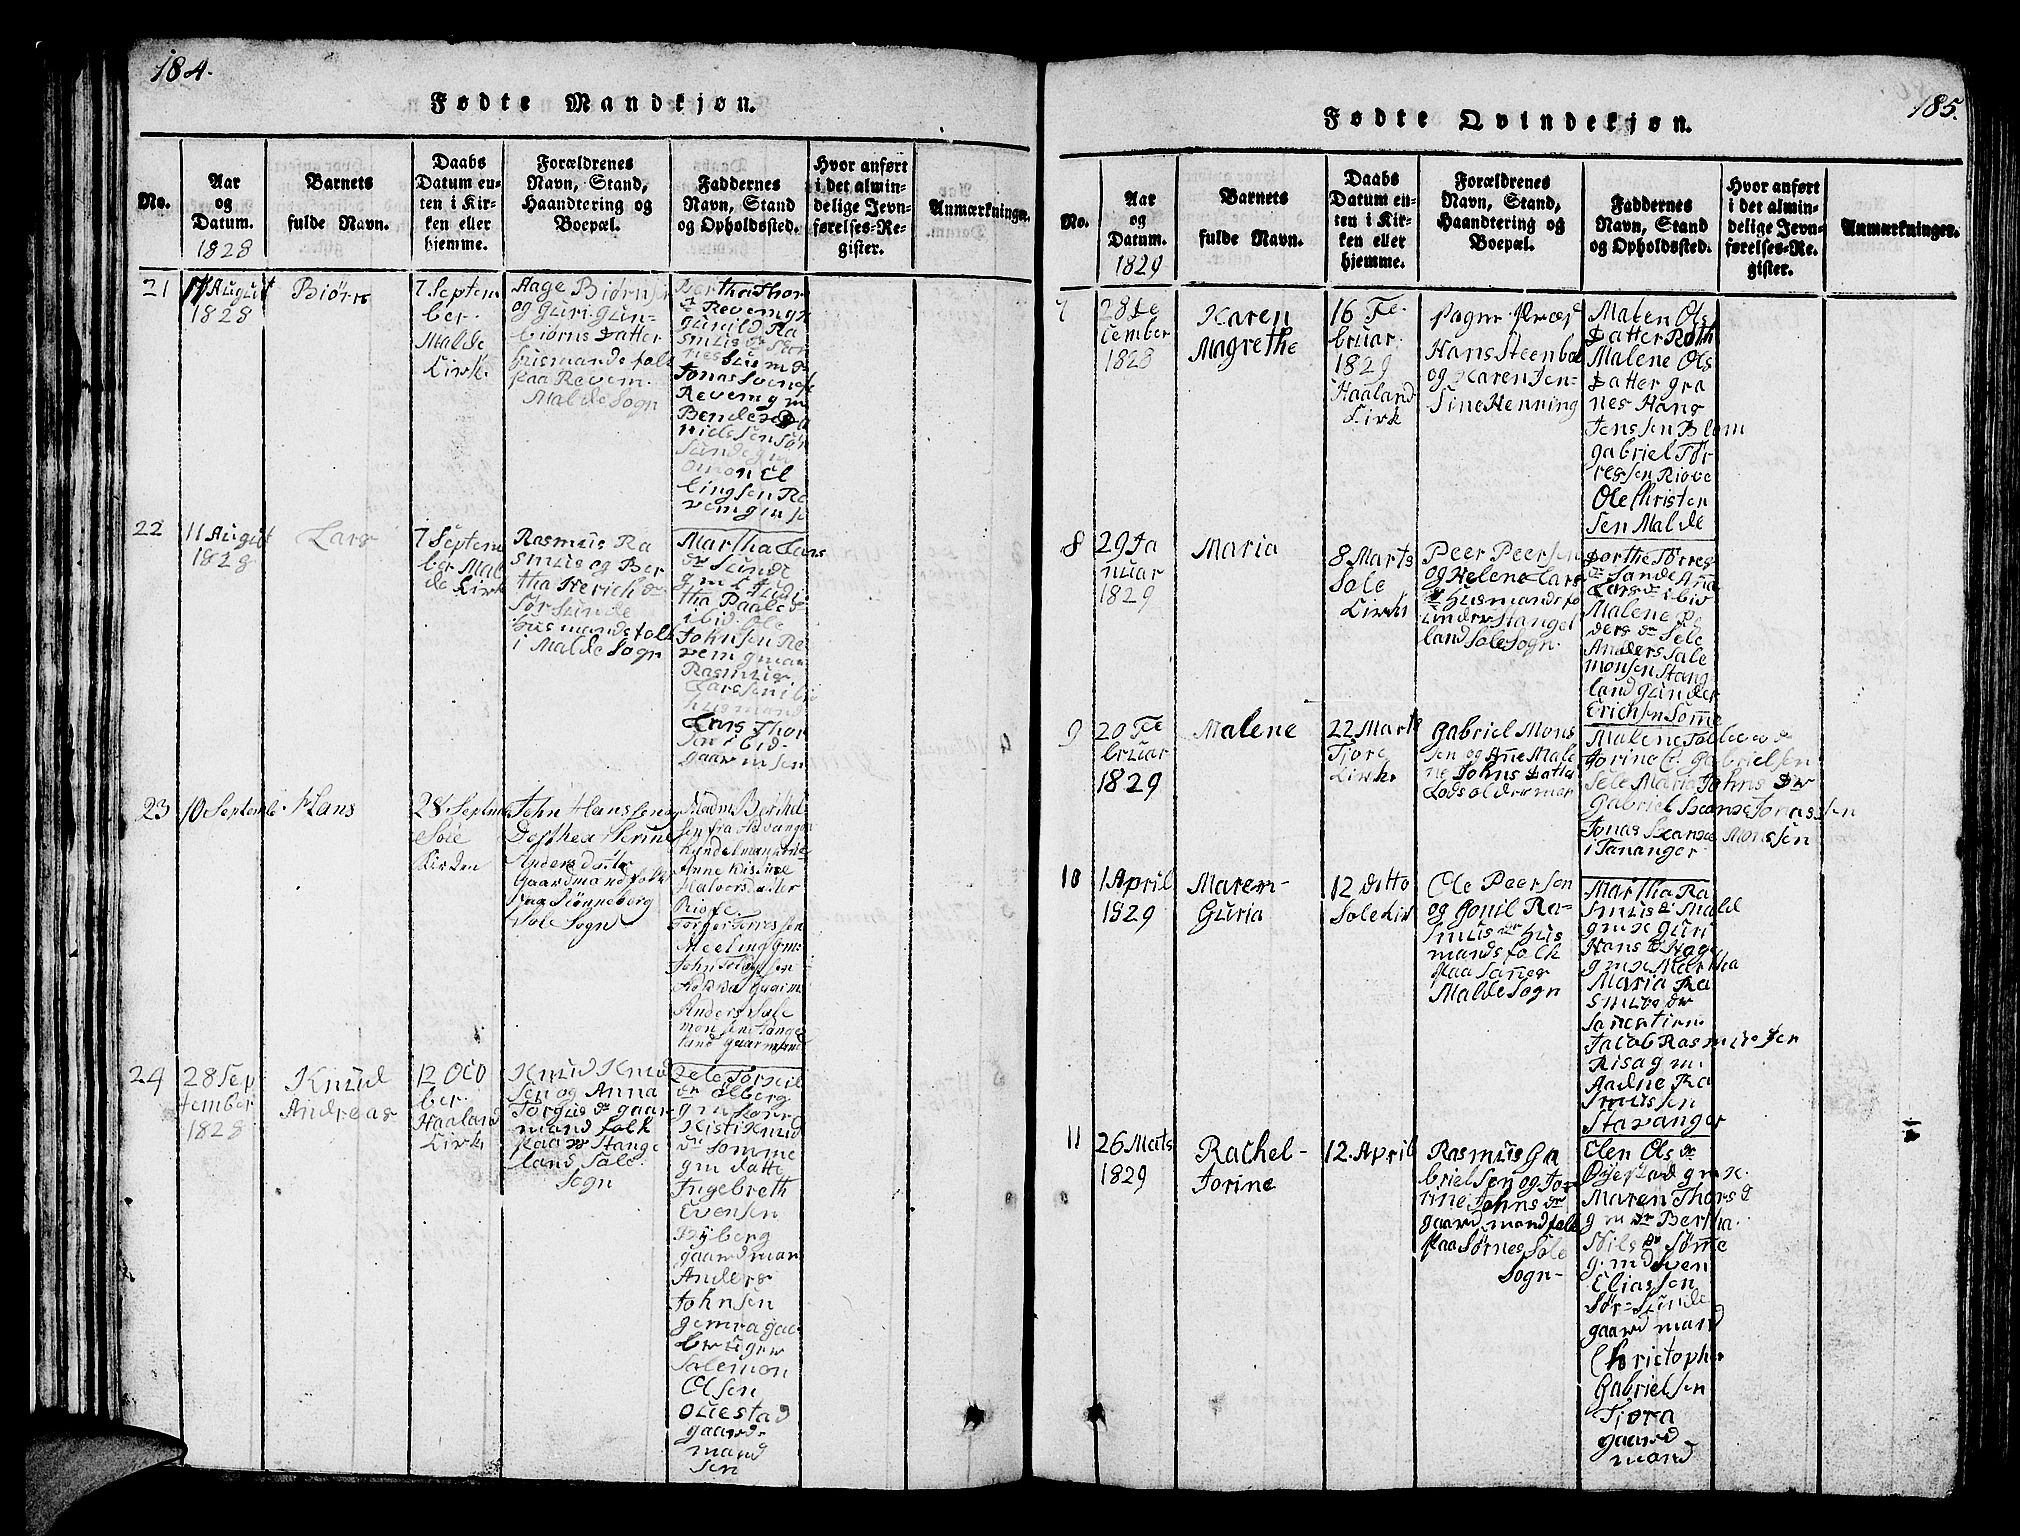 184.
Fødte Mandkjøn.
No.
Aar
og
Datum.
1828
Barnets
fulde Navn.
Daabs
Datum en-
ten i Kir-
ken eller
hjemme.
Forældrenes
Navn, Stand,
Haandtering og
Boepæl.
Faddernes
Navn, Stand
og Opholdssted.
Hvor anført
i det almin-
delige Jevn-
førelses-Re-
gister.
Anmærkninger.
21
17 August
1828
Biørn
7 Septem
ber.
Malde
Kirk.
Aage Biørns
og Guri. Gun-
biørns Datter
husmandsfolk
paa Revem.
Malde Sogn
Bertha Thor
Revem gk
Gunild Ra
smus dr
Jonas Svends
Revem gm
Bende
nielssen Sør
Sunde gm
Omon El
lingsen Re
vem gm
22
11 August
1828
Lars
7 Septem
ber Mal
de Kirk
Rasmus Ra
smus og Ber
tha Herich dr
Sør Sunde
husmandsfolk
i Malde Sogn
Martha Lars
dr Sunde
tha Paals d
ibid. Ole
Johnsen Re
vem gmand
Rasmus.
Larssen ibid
husmand
Lars Thor
sen ibid.
gaardmsen
23
10 Septembr
Hans
28 Septembr
Sole
Kirken
John Hanssen og
Dorthea Serine
Anders datter
Gaardmandsfolk
paa Rønneberg
Sole Sogn
Madm Berthel
sen fra Stavanger
Anne Kistine
Halvorsdatter
Riofe.
Torger Torressen
Meeling gm:
John
Anders Sale
monsen Stange
land gaarmand
24
28 Sep
tember
1828
Knud
Andreas
12 Octo
ber.
Haaland
Kirk
Knud Knud
sen og Anna
Torgus dr gaar
mand folk
paa Stange
land Sole
Sogn
Zele Torkil
dr Ølberg
gm kone
Kisti Knud
dr Somme
gm datte
Ingebreth
Evensen
Byberg
gaardman
Anders
Johnsen
Gemra gaae
bruger
Salemon
Olsen
Ouestad
gaard-
mand
sen
185.
Fødte Qvindekjøn.
No.
Aar
og
Datum.
1829
Barnets
fulde Navn.
Daabs
Datum en-
ten i Kir-
ken eller
hjemme.
Forældrenes
Navn, Stand,
Haandtering og
Boepæl.
Faddernes
Navn, Stand
og Opholdssted.
Hvor anført
i det almin-
delige Jevn-
førelses-Re-
gister.
Anmærkninger.
7
28 De
cember
1828
Karen
Magrethe
16 Fe-
bruar.
1829
Haaland
Kirk
Sogne Præst
Hans Steenbuk
og Karen Jen-
sine Henning
Maren Ols
Datter Roth
Malene Ols
Datter Gra
nes Hans
Jenssen Blom
Gabriel Tør
ressen Riove
Ole Christen
sen Malde
8
29 Ja
nuar
1829
Maria
8 Marts
Sole
Kirk
Peer Peersen
og Helene Lars
dr Husmandsfo
under Stangel
land Sole Sogn.
Dorthe Tørres
dr Sande Aña
Lars dr ibid
Malene Pe
ders dr Sele
Anders Sale
monsen Stang
land Gunder
Erichsen Some
9
20 Fe
bruar
1829
Malene
22 Marts
Tjore
Kirk.
Gabriel Mons
sen og Añe Male
ne Johns Datter
Lodsoldermar
Malene
Jorine G. Gabrielsen
Sele Maria Johns Dr
Gabriel Svanøe Jonassen
Jonas Svanøe Monssen
i Tananger
10
1 April
1829
Maren-
Guria
12 ditto
Sole Kirk
Ole Peersen
og Gonil Ra-
smus dr Hus
mandsfolk
paa Sañes
Malde Sogn
Martha Ra
smus dr Malde
gmk Guri
Hans dr Haga
gmk Martha
Maria Ra
smus dr
Sañes tiene
Jacob Rasmussen
Risa gm
Aadne Ra
smussen
Stavanger
11
26 Marts
1829
Rachel-
Jorine
12. April
Rasmus Ga
brielsen og Jo
rine Johns dr
gaardmandfolk
paa Sørnes Sole
Sogn-
Elen Ols dr
Øÿestad gmk.
Maren Thors d
gm dr Bertha.
Nils dr Søme
g. m Sven
Eliassen
Sør-Sunde
gaardmand
Christopher
Gabrielsen
Tjora
gaard
mand